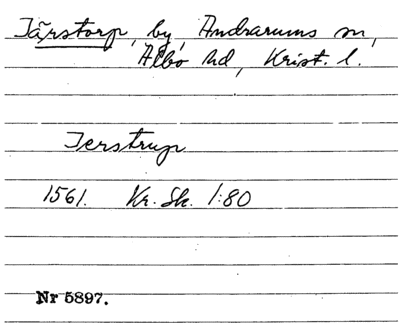 Tärstorp, by, Andrarums sn,
Albo hd, Krist. l.
Terstrup
1561. Kr. Sk. 1:80
Nr 5897.